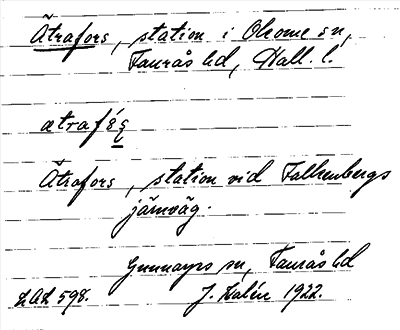 Ätrafors, station i Okome sn,
Faurås hd, Hall. l.
Ätrafors, station vid Falkenbergs
järnväg.
Gunnarps sn, Faurås hd
LAL 598. J. Kalén 1922.